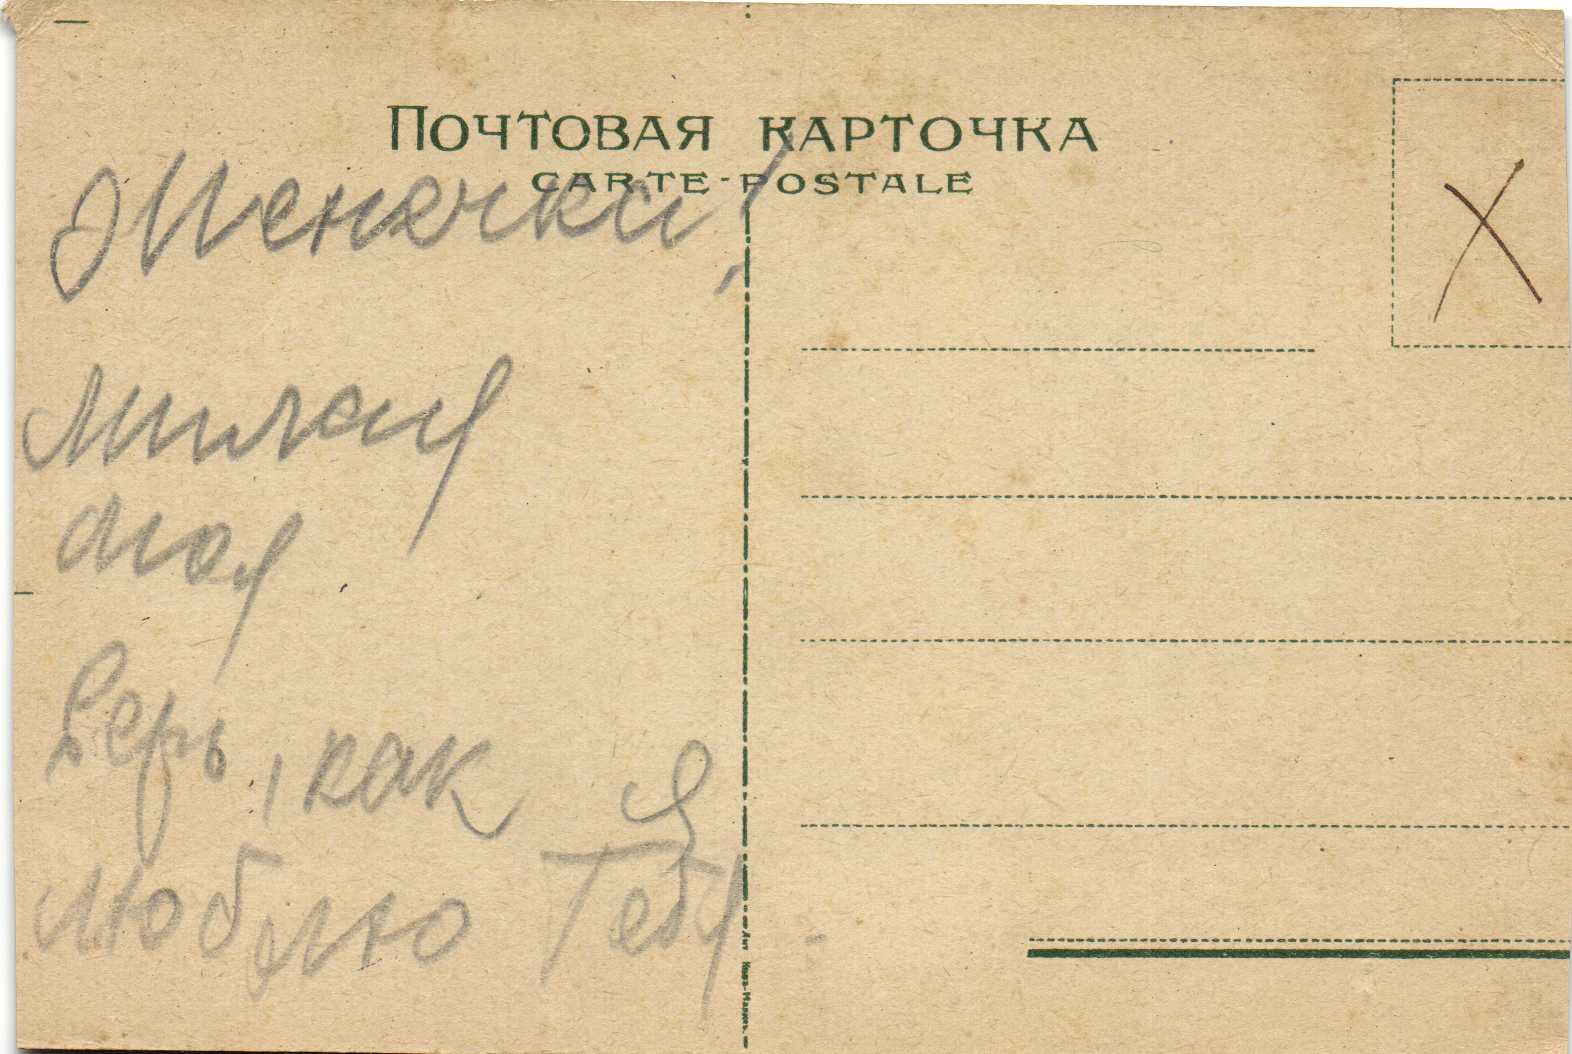 ПОЧТОВАЯ КАРТОЧКА
CARTE-POSTALE
Женечка!
милая
моя
Верь, как
люблю Тебя